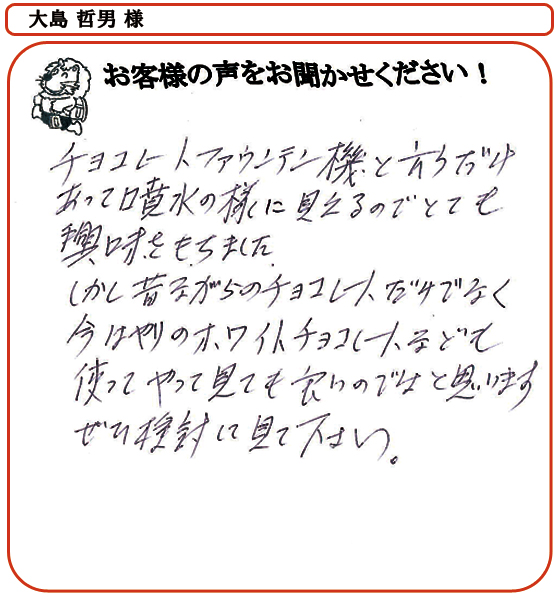 大島 哲男 様
お客様の声をお聞かせください！
チョコレートファウンテン機と言うだけ
あって噴水の様に見えるのでとても
興味をもちました
しかし昔ながらのチョコレートだけでなく
今はやりのホワイトチョコレートなども
使ってやって見ても良いのではと思います
ぜひ検討して見て下さい。